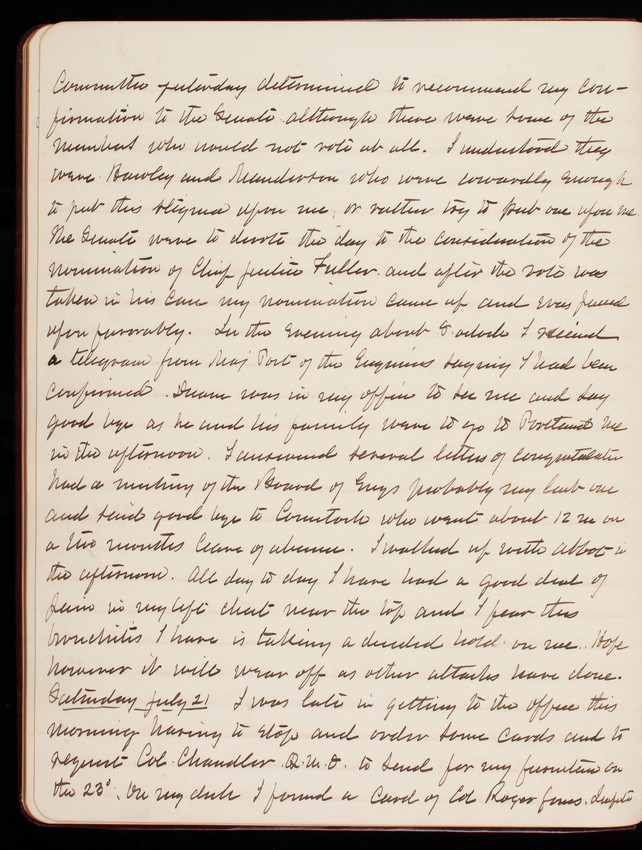 Committee yesterday determined to recommend my con-
firmation to the Senate although there were some of the
members who would not vote at all. I understood they
were Hawley and Manderson who were cowardly enough
to put this stigma upon me, or rather try to put one upon me
The Senate were to devote the day to the consideration of the
nomination of Chief Justice Fuller and after the vote was
taken in his case my nomination came up and was passed
upon favorably. In the evening about 8 oclock I received
a telegram from Maj Post of the Engineers saying I had been
confirmed. Duane was in my office to see me and say
good bye as he and his family were to go to Portland Me
in the afternoon. I answered several letters of congratulation
had a meeting of the Board of Engs probably my last one
and said good bye to Comstock who went about 12 m on
a two months leave of absence. I walked up with Abbot in
the afternoon. All day to day I have had a good deal of
pain in my left chest near the top and I fear this
bronchitis I have is taking a decided hold on me. Hope
however it will wear off as other attacks have done.
Saturday July 21 I was late in getting to the office this
morning having to stop and order some cards and to
request Col. Chandler Q.M.D. to send for my furniture on
the 23d. On my desk I found a card of Col Roger Jones.